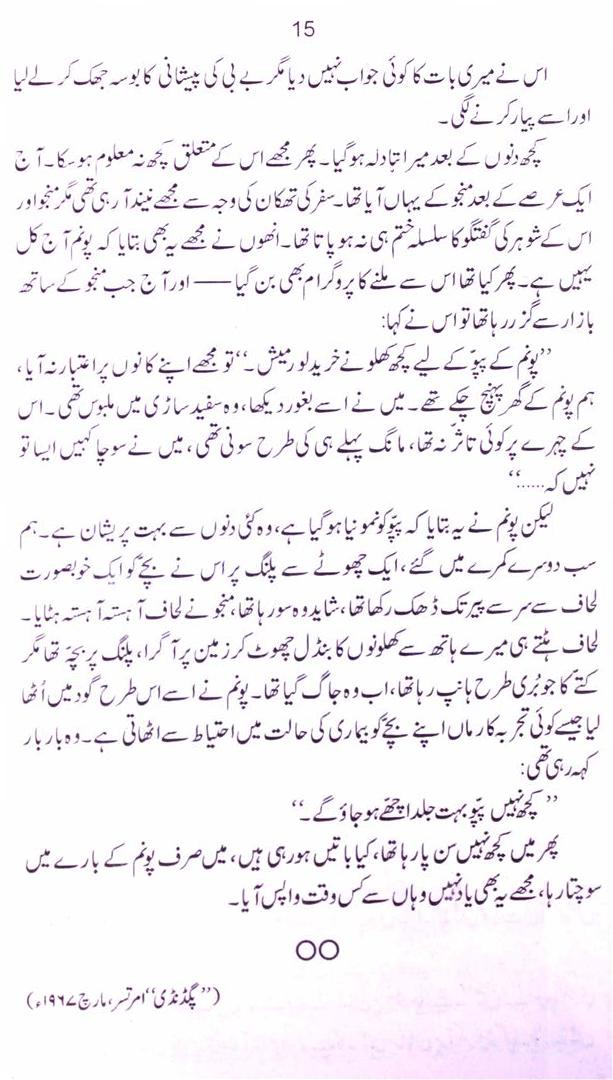 15
اس نے میری بات کا کوئی جواب نہیں دیا مگر بے بی کی پیشانی کا بوسہ جھک کر لے لیا
اور اسے پیار کرنے لگی۔
کچھ دنوں کے بعد میرا تبادلہ ہوگیا۔ پھر مجھے اس کے متعلق کچھ نہ معلوم ہوسکا۔ آج
ایک عرصے کے بعد منجو کے یہاں آیا تھا۔ سفر کی تھکان کی وجہ سے مجھے نیند آرہی تھی مگر منجو اور
اس کے شوہر کی گفتگو کا سلسلہ ختم ہی نہ ہو پاتا تھا۔ انھوں نے مجھے یہ بھی بتایا کہ پونم آج کل
یہیں ہے۔ پھر کیا تھا اس سے ملنے کا پروگرام بھی بن گیا —— اور آج جب منجو کے ساتھ
بازار سے گزر رہا تھا تو اس نے کہا:
’’پونم کے پپّو کے لیے کچھ کھلونے خرید لو رمیش۔‘‘ تو مجھے اپنے کانوں پر اعتبار نہ آیا،
ہم پونم کے گھر پہنچ چکے تھے۔ میں نے اسے بغور دیکھا، وہ سفید ساڑی میں ملبوس تھی۔ اس
کے چہرے پر کوئی تاثّر نہ تھا، مانگ پہلے ہی کی طرح سونی تھی، میں نے سوچا کہیں ایسا تو
نہیں کہ.....‘‘
لیکن پونم نے یہ بتایا کہ پپّو کو نمونیا ہوگیا ہے، وہ کئی دنوں سے بہت پریشان ہے۔ ہم
سب دوسرے کمرے میں گئے، ایک چھوٹے سے پلنگ پر اس نے بچّے کو ایک خوبصورت
لحاف سے سر سے پیر تک ڈھک رکھا تھا، شاید وہ سو رہا تھا، منجو نے لحاف آہستہ آہستہ ہٹایا۔
لحاف ہٹتے ہی میرے ہاتھ سے کھلونوں کا بنڈل چھوٹ کر زمین پر آ گرا، پلنگ پر بچّہ تھا مگر
کتّے کا جو بُری طرح ہانپ رہا تھا، اب وہ جاگ گیا تھا۔ پونم نے اسے اس طرح گود میں اُٹھا
لیا جیسے کوئی تجربہ کار ماں اپنے بچّے کو بیماری کی حالت میں احتیاط سے اٹھاتی ہے۔ وہ بار بار
کہہ رہی تھی:
’’کچھ نہیں پپّو بہت جلد اچھّے ہوجاؤ گے۔‘‘
پھر میں کچھ نہیں سن پا رہا تھا، کیا باتیں ہو رہی ہیں، میں صرف پونم کے بارے میں
سوچتا رہا، مجھے یہ بھی یاد نہیں وہاں سے کس وقت واپس آیا۔
(’’پگڈنڈی‘‘ امرتسر، مارچ ۱۹۶۷ء)